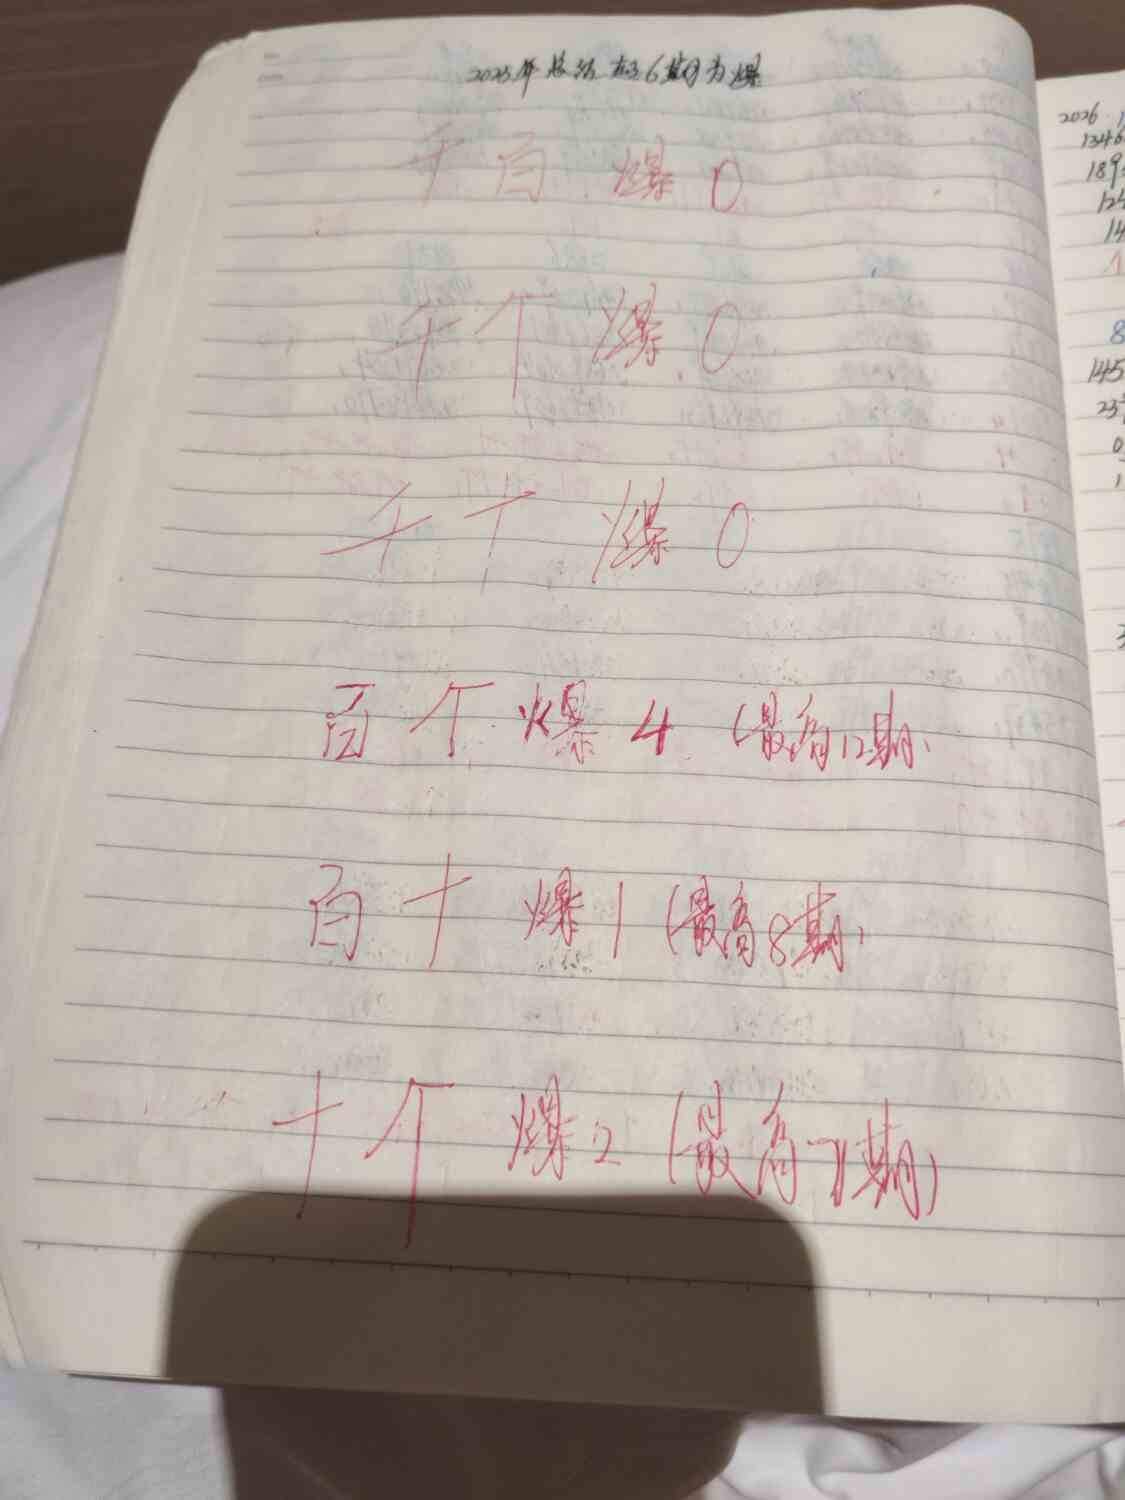 2025年总结 6期为爆
千百 爆 0
千个 爆 0
千十 爆 0
百个 爆 4 (最高12期)
百十 爆 1 (最高8期)
十个 爆 2 (最高7期)
2026
1346
189
124
14
8
145
23
0
1
3